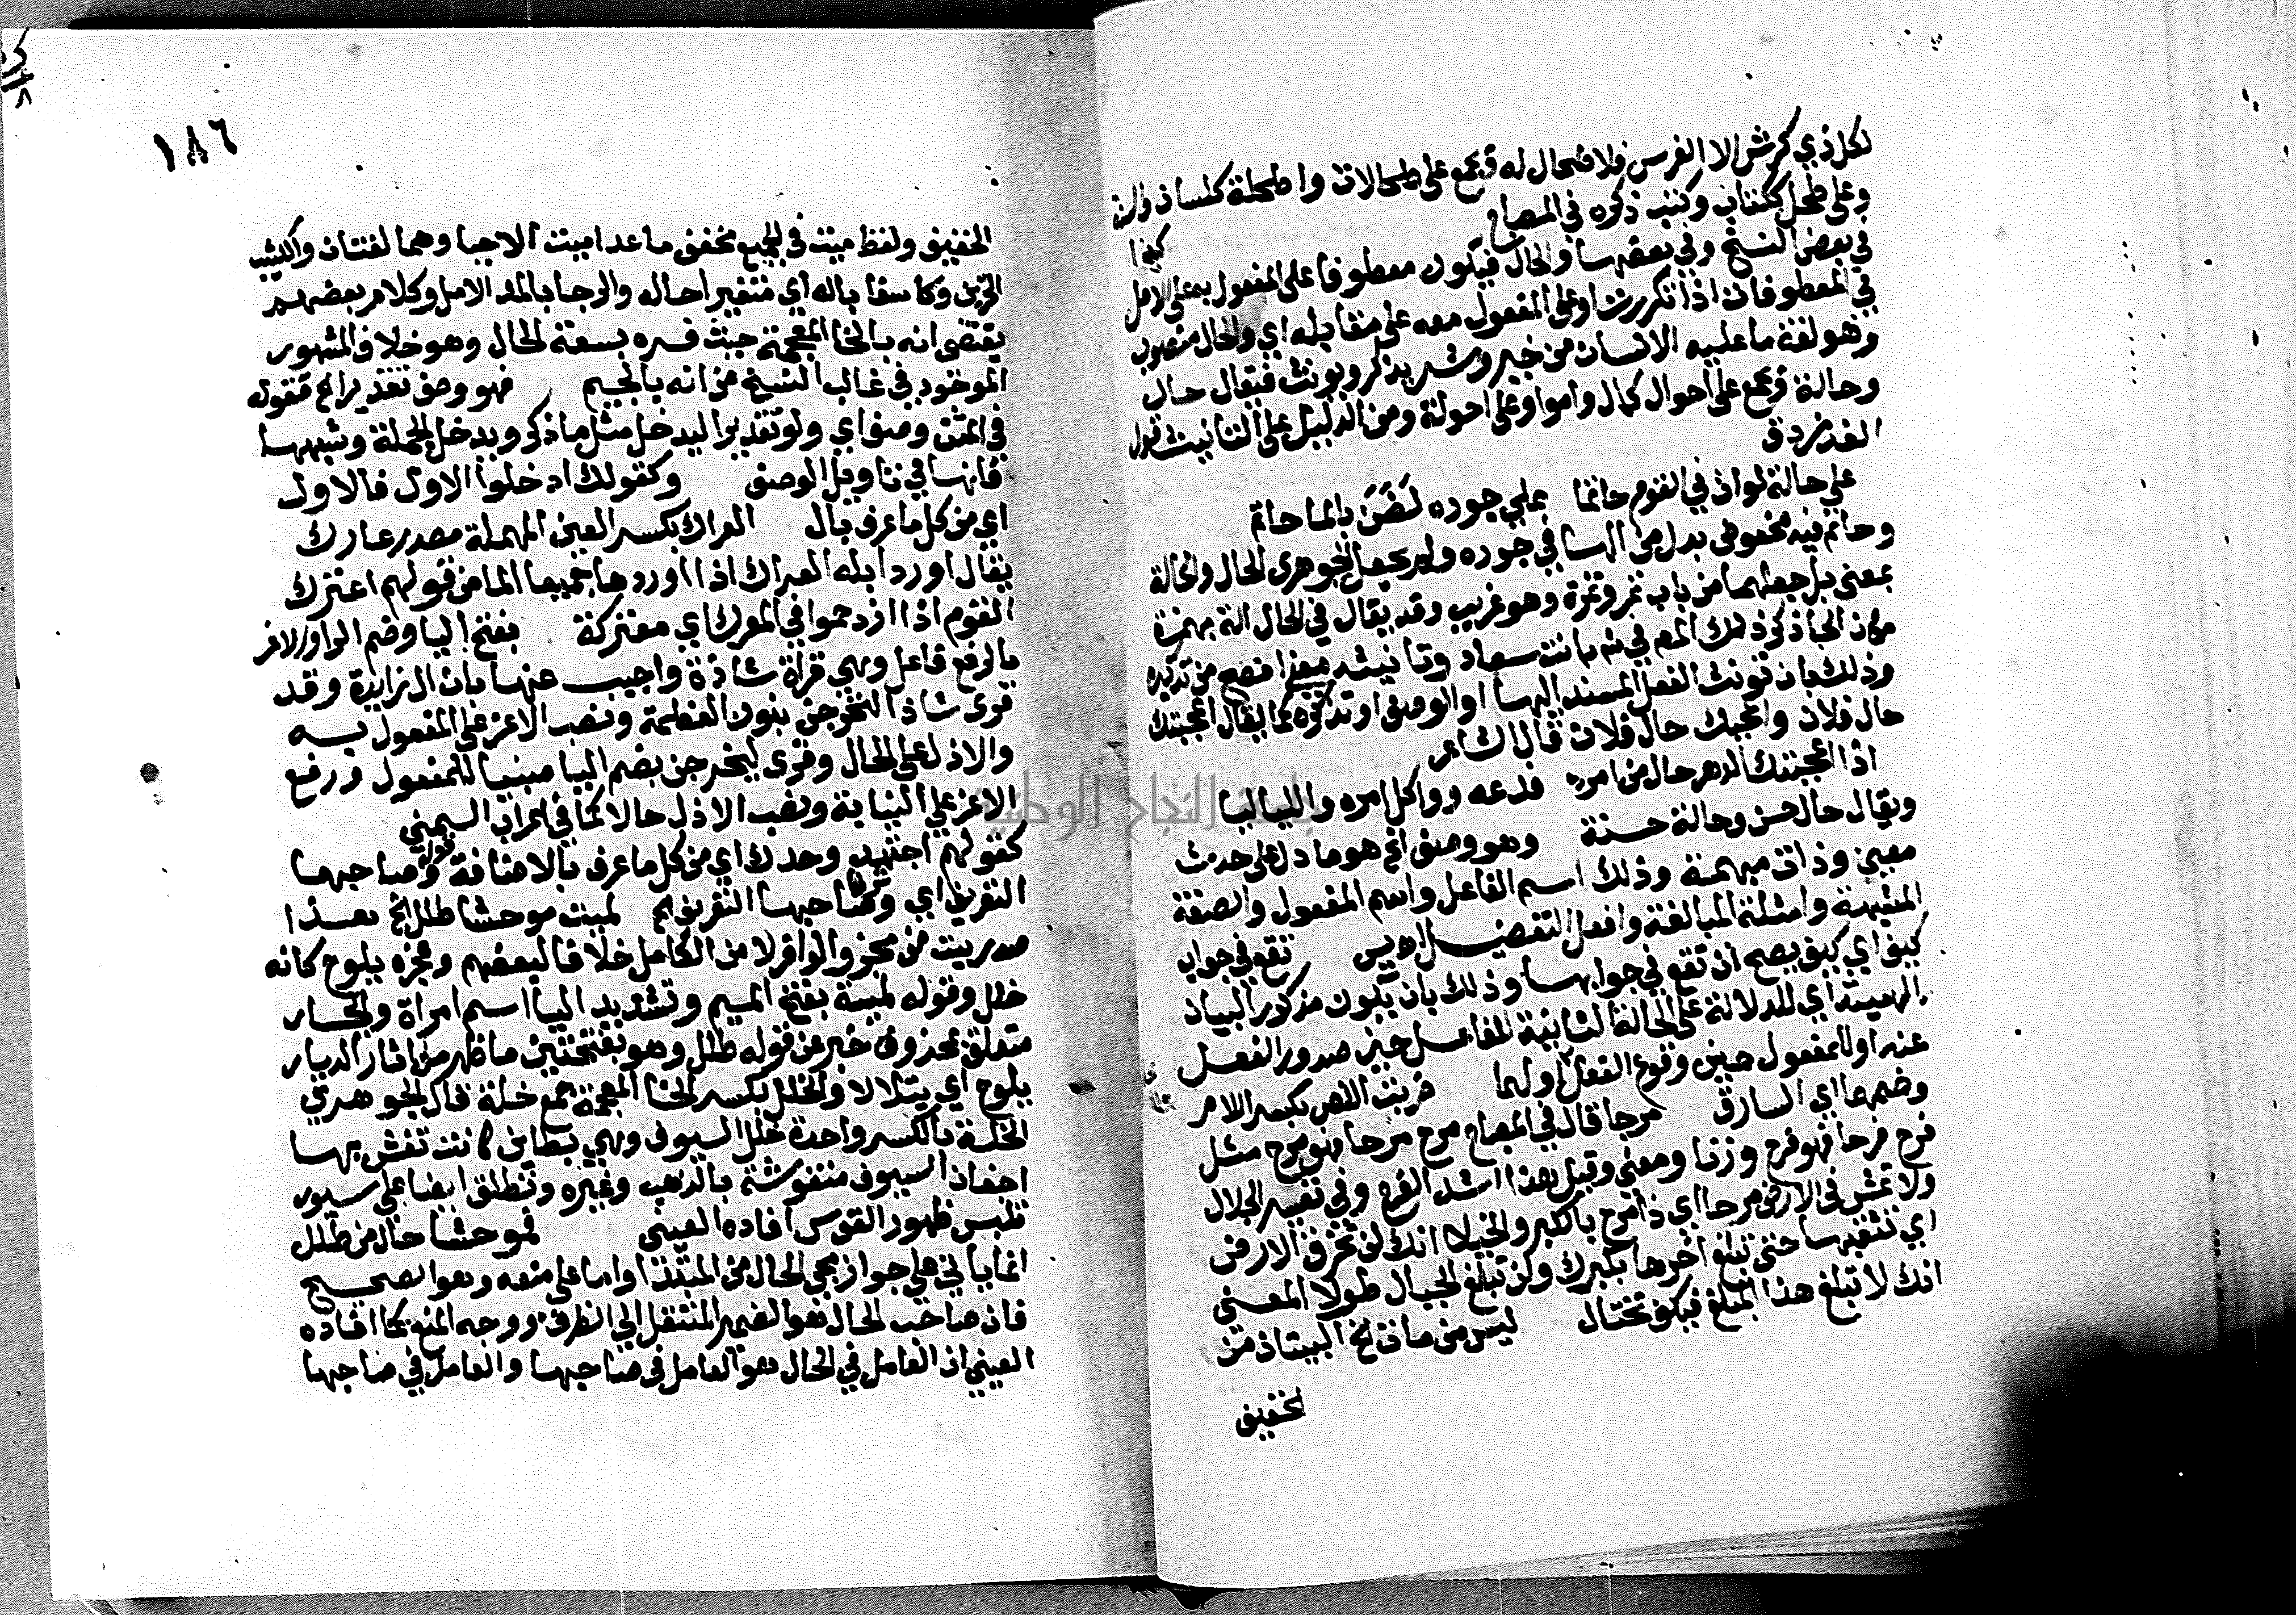 لكل ذي كرش الا الفرس فلا طحال له ويجمع على طحالات واطحلة كلسان والسنة
وعلى طحل ككتاب وكتب ذكره في المصباح
في بعض النسخ وفي بعضها والحال فيكون معطوفا على المفعول به على الاصل
في المعطوفات اذا تكررت او على المفعول معه على مقابله اي والحال منصوب
وهو لغة ما عليه الانسان من خير وشر يذكر ويونث فيقال حال
وحالة ويجمع على احوال كمال واموال وعلى احولة ومن الدليل على التانيث قول
الفرزدق
على حالة لو ان في القوم حاتما على جوده لضن بالما حاتم
وحاتم فيه مخفوض بدل من الها في جوده ولم يجعل الجوهري الحال والحالة
بمعنى بل جعلهما من باب تمر وتمرة وهو غريب وقد يقال في الحال الة بهمزة
مكان الحا ذكر ذلك المص في شرح بانت سعاد وتانيثه معنى افصح من تذكيره
وذلك بان تونث الفعل المسند اليها او الوصف او تذكره كما يقال اعجبتك
حال فلان واعجبك حال فلان قال الشاعر
اذا اعجبتك الدهر حال من امرء فدعه وواكل امره واللياليا
ويقال حال حسن وحالة حسنة وهو وصف الخ هو ما دل على حدث
معين وذات مبهمة وذلك اسم الفاعل واسم المفعول والصفة
المشبهة وامثلة المبالغة وافعل التفضيل تقع في جواب
كيف اي كيف يصح ان تقع في جوابها وذلك بان يكون مذكورا لبيان
الهيئة اي للدلالة على الحالة الثابتة للفاعل حين صدور الفعل
عنه او للمفعول حين وقوع الفعل او لهما ضربت اللص بكسر اللام
وضمها اي السارق مرحا قال في المصباح مرح مرحا فهو مرح مثل
فرح فرحا فهو فرح وزنا ومعنى وقيل هذا اشد الفرح وفي تفسير الجلال
ولا تمش في الارض مرحا اي ذا مرح بالكبر والخيلا انك لن تخرق الارض
اي تثقبها حتى تبلغ اخرها بكبرك ولن تبلغ الجبال طولا المعنى
انك لا تبلغ هذا المبلغ فكيف تختال ليس من مات الخ البيتان من
الخفيف
١٨٦
الخفيف ولفظ ميت في الجميع مخفف ما عدا ميت الاحيا وهما لغتان والكئيب
الحزين وكاسفا باله اي متغيرا حاله والرجا بالمد الامل وكلام بعضهم
يقتضي انه بالخا المعجمة حيث فسره بسعة الحال وهو خلاف المشهور
الموجود في غالب النسخ من انه بالجيم فهو وصف تقديرا الخ فقوله
في المتن وصف اي ولو تقديرا ليدخل مثل ما ذكر ويدخل الجملة وشبهها
فانها في تاويل الوصف وكقولك ادخلوا الاول فالاول
اي من كل ما عرف بال العراك بكسر العين المهملة مصدر عارك
يقال اورد ابله العراك اذا اوردها جميعا الما من قولهم اعترك
القوم اذا ازدحموا في المعرك اي معتركة بفتح اليا وضم الرا والاعز
بالرفع فاعل وهي قراة شاذة واجيب عنها بان ال زايدة وقد
قري شاذا لنخرجن بنون العظمة ونصب الاعز على المفعول به
والاذل على الحال وقري ليخرجن بضم اليا مبنيا للمفعول ورفع
الاعز على النيابة ونصب الاذل حالا كما في اعراب السمين
كقولهم اجتهد وحدك اي من كل ما عرف بالاضافة قوله وصاحبها
التعريف اي وشرط صاحبها التعريف الخ لمية موحشا طلل الخ هذا
صدر بيت من مجزو الوافر لا من الكامل خلافا لبعضهم وعجزه يلوح كانه
خلل وقوله لمية بفتح الميم وتشديد اليا اسم امراة والجار
متعلق بمحذوف خبر عن قوله طلل وهو بفتحتين ما ظهر من اثار الديار
يلوح اي يتلالا والخلل بكسر الخا المعجمة جمع خلة قال الجوهري
الخلة بالكسر واحدة خلل السيوف وهي بطاين كانت تغشى بها
اجفان السيوف منقوشة بالذهب وغيره وتطلق ايضا على سيور
تلبس ظهور القوس افاده العيني فموحشا حال من طلل
انما ياتي على جواز مجي الحال من المبتدا واما على منعه وهو الصحيح
فان صاحب الحال هو الضمير المنتقل الى الظرف ووجه المنع كما افاده
العيني ان العامل في الحال هو العامل في صاحبها والعامل في صاحبها
جامعة النجاح الوطنية